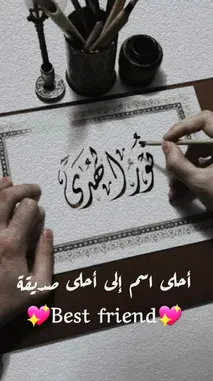 نور الهدى
أحلى اسم إلى أحلى صديقة
💖Best friend💖